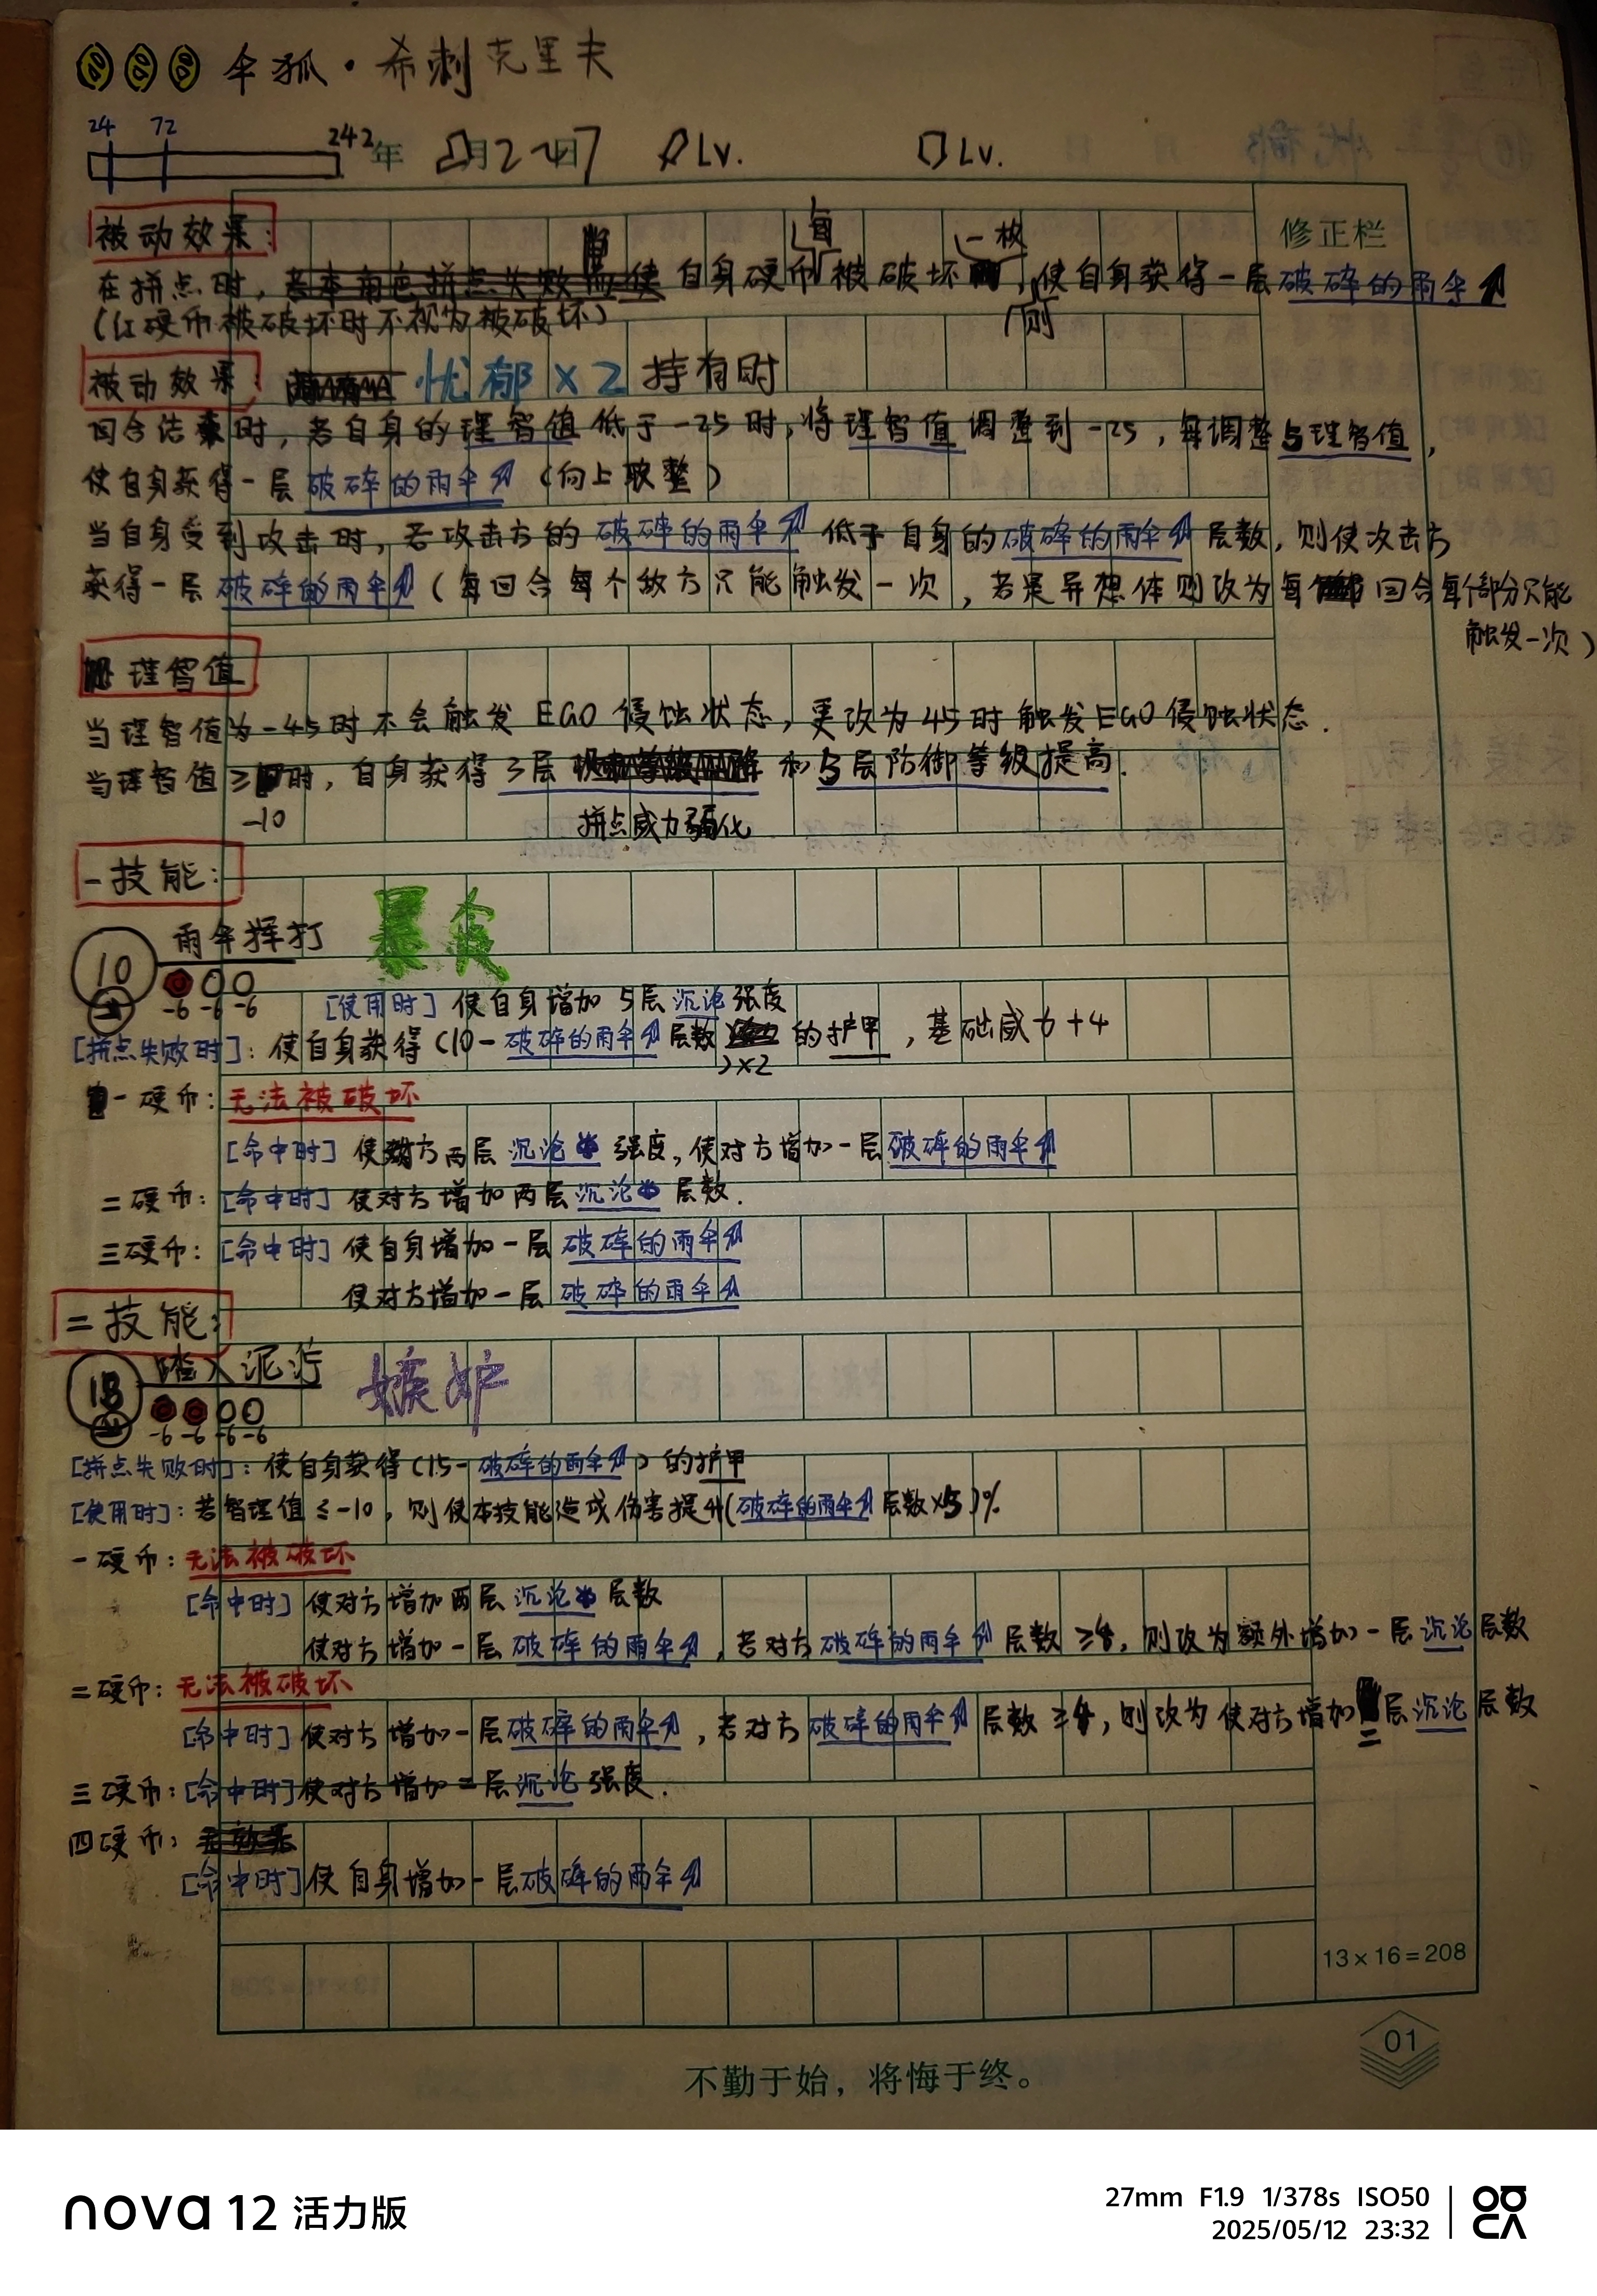 伞狐·希刺克里夫
24 72 242
年 月 2-7 日 Lv. Lv.
被动效果: 修正栏
在拼点时, 自身硬币每被破坏一枚, 则使自身获得一层破碎的雨伞
(红硬币被破坏时不视为被破坏)
被动效果: 忧郁×2 持有时
回合结束时, 若自身的理智值低于-25时, 将理智值调整到-25, 每调整5理智值,
使自身获得一层破碎的雨伞 (向上取整)
当自身受到攻击时, 若攻击方的破碎的雨伞低于自身的破碎的雨伞层数, 则使攻击方
获得一层破碎的雨伞 (每回合每个敌方只能触发一次, 若是异想体则改为每回合每个部分只能
触发一次)
理智值
当理智值为-45时不会触发EGO侵蚀状态, 更改为45时触发EGO侵蚀状态.
当理智值≥-10时, 自身获得3层拼点威力弱化和5层防御等级提高.
一技能:
雨伞挥打 暴食
10
-6 -6 -6
[使用时] 使自身增加5层沉沦强度
[拼点失败时]: 使自身获得(10-破碎的雨伞层数)×2的护甲, 基础威力+4
一硬币: 无法被破坏
[命中时] 使对方两层沉沦强度, 使对方增加一层破碎的雨伞
二硬币: [命中时] 使对方增加两层沉沦层数.
三硬币: [命中时] 使自身增加一层破碎的雨伞
使对方增加一层破碎的雨伞
二技能:
踏入泥泞 嫉妒
18
-6 -6 -6 -6
[拼点失败时]: 使自身获得(15-破碎的雨伞)的护甲
[使用时]: 若智理值≤-10, 则使本技能造成伤害提升(破碎的雨伞层数×5)%
一硬币: 无法被破坏
[命中时] 使对方增加两层沉沦层数
使对方增加一层破碎的雨伞, 若对方破碎的雨伞层数≥8, 则改为额外增加一层沉沦层数
二硬币: 无法被破坏
[命中时] 使对方增加一层破碎的雨伞, 若对方破碎的雨伞层数≥8, 则改为使对方增加二层沉沦层数
三硬币: [命中时] 使对方增加二层沉沦强度.
四硬币:
[命中时] 使自身增加一层破碎的雨伞
13×16=208
01
不勤于始，将悔于终。
nova 12 活力版
27mm F1.9 1/378s ISO50
2025/05/12 23:32